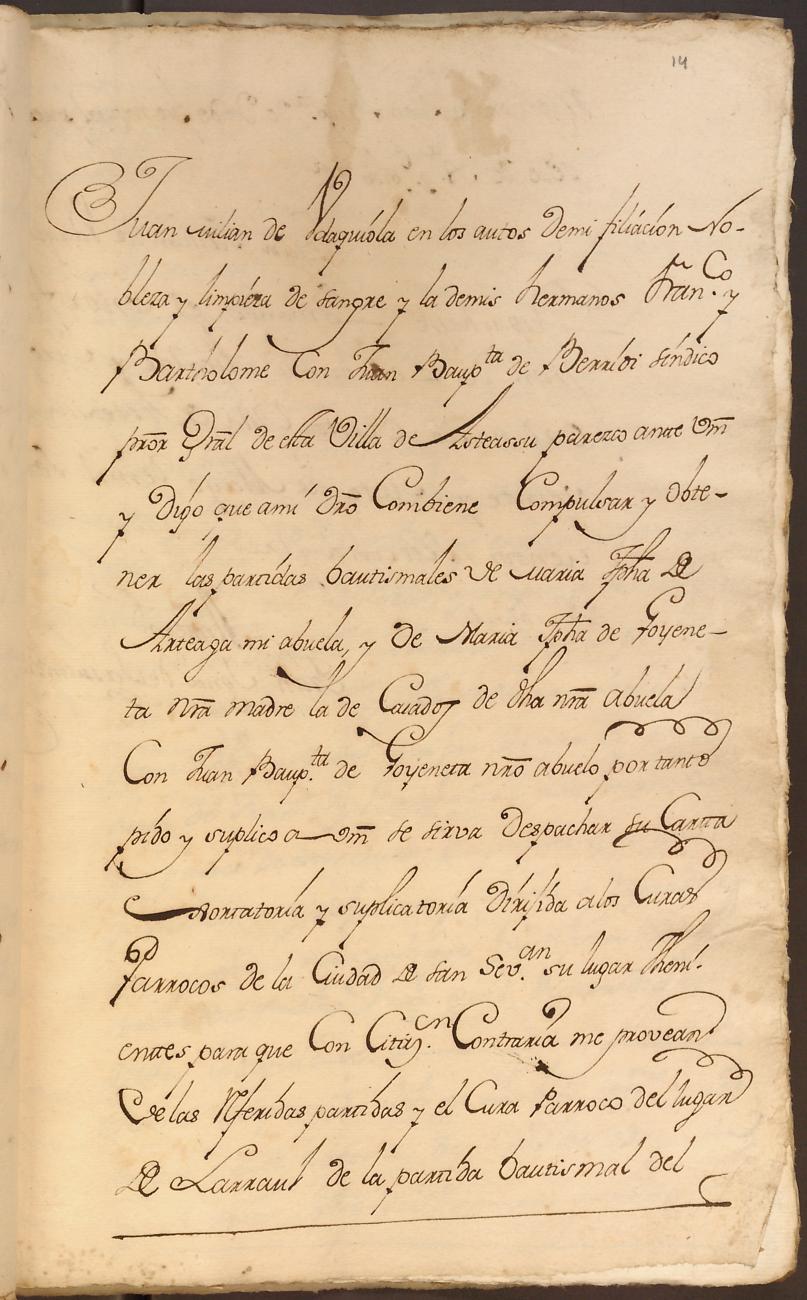 14
Juan Miian de Vdaquiola en los autos demi filiacion No-
bleza y limpieza de sangre y la demis hermanos Fran.co y
Bartholome Con Juan Baup.ta de Berribi sindico
pror Gral de esta Villa de Asteassu parezco ante Vm
y Digo que ami dro Combiene Compulsar y obte-
ner las partidas bautismales de Maria Jpha de
Arteaga mi abuela, y De Maria Jpha de Goyene-
ta nra madre la de Casados de dha nra abuela
Con Juan Baup.ta de Goyeneta nro abuelo por tanto
pido y suplico a vm se sirva Despachar su Carta
exortatoria y suplicatoria dirijida a los Curas
Parrocos de la Ciudad de San Sev.an su lugar Theni-
entes para que Con Citaz.on Contraria me provean
de las Rferidas partidas y el Cura Parroco del lugar
de Larraul de la partida bautismal del